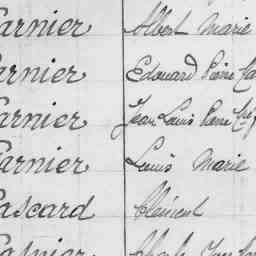 arnier Albert Marie
arnier Edouard Pierre
arnier Jean Louis Pierre
arnier Louis Marie
ascard Clément